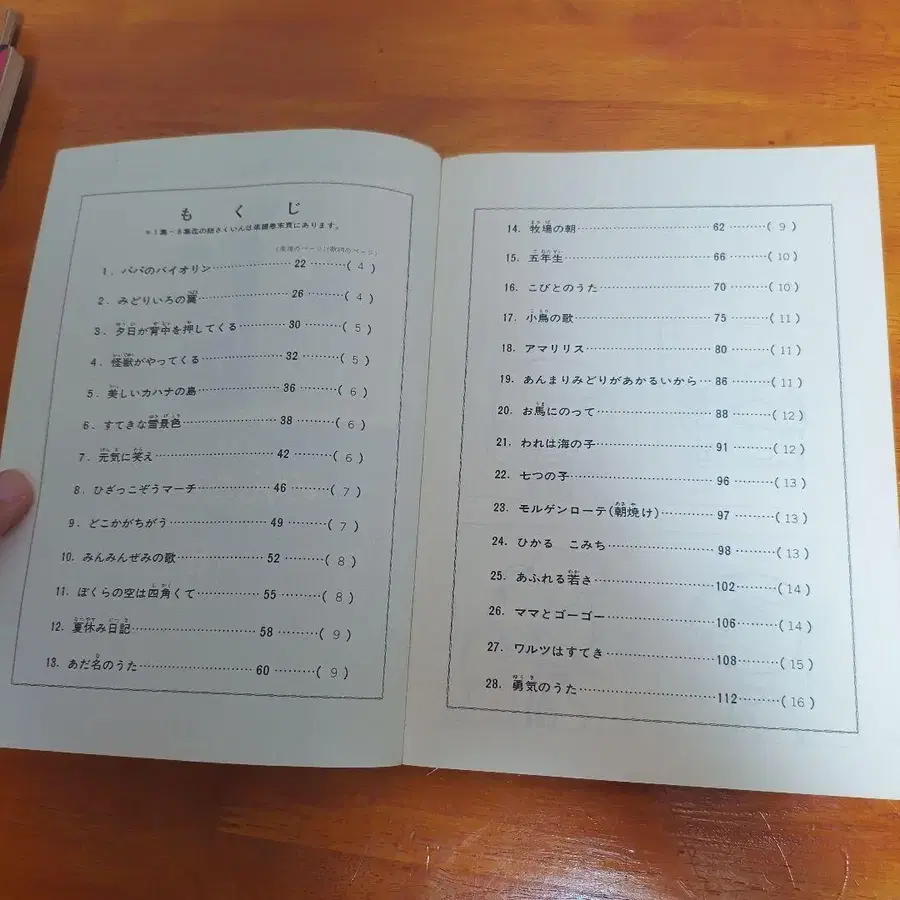 もくじ
＊1集－8集迄の総さくいんは楽譜巻末頁にあります。
(楽譜のページ)(歌詞のページ)
1. パパのバイオリン……………22………( 4 )
2. みどりいろの翼………………26………( 4 )
3. 夕日が背中を押してくる……30………( 5 )
4. 怪獣がやってくる……………32………( 5 )
5. 美しいカハナの島……………36………( 6 )
6. すてきな雪景色………………38………( 6 )
7. 元気に笑え……………………42………( 6 )
8. ひざっこぞうマーチ…………46………( 7 )
9. どこかがちがう………………49………( 7 )
10. みんみんぜみの歌……………52………( 8 )
11. ぼくらの空は四角くて………55………( 8 )
12. 夏休み日記……………………58………( 9 )
13. あだ名のうた…………………60………( 9 )
14. 牧場の朝………………………62………( 9 )
15. 五年生…………………………66………(10)
16. こびとのうた…………………70………(10)
17. 小鳥の歌………………………75………(11)
18. アマリリス……………………80………(11)
19. あんまりみどりがあかるいから…86………(11)
20. お馬にのって…………………88………(12)
21. われは海の子…………………91………(12)
22. 七つの子………………………96………(13)
23. モルゲンローテ(朝焼け)……97………(13)
24. ひかる　こみち………………98………(13)
25. あふれる若さ…………………102………(14)
26. ママとゴーゴー………………106………(14)
27. ワルツはすてき………………108………(15)
28. 勇気のうた……………………112………(16)